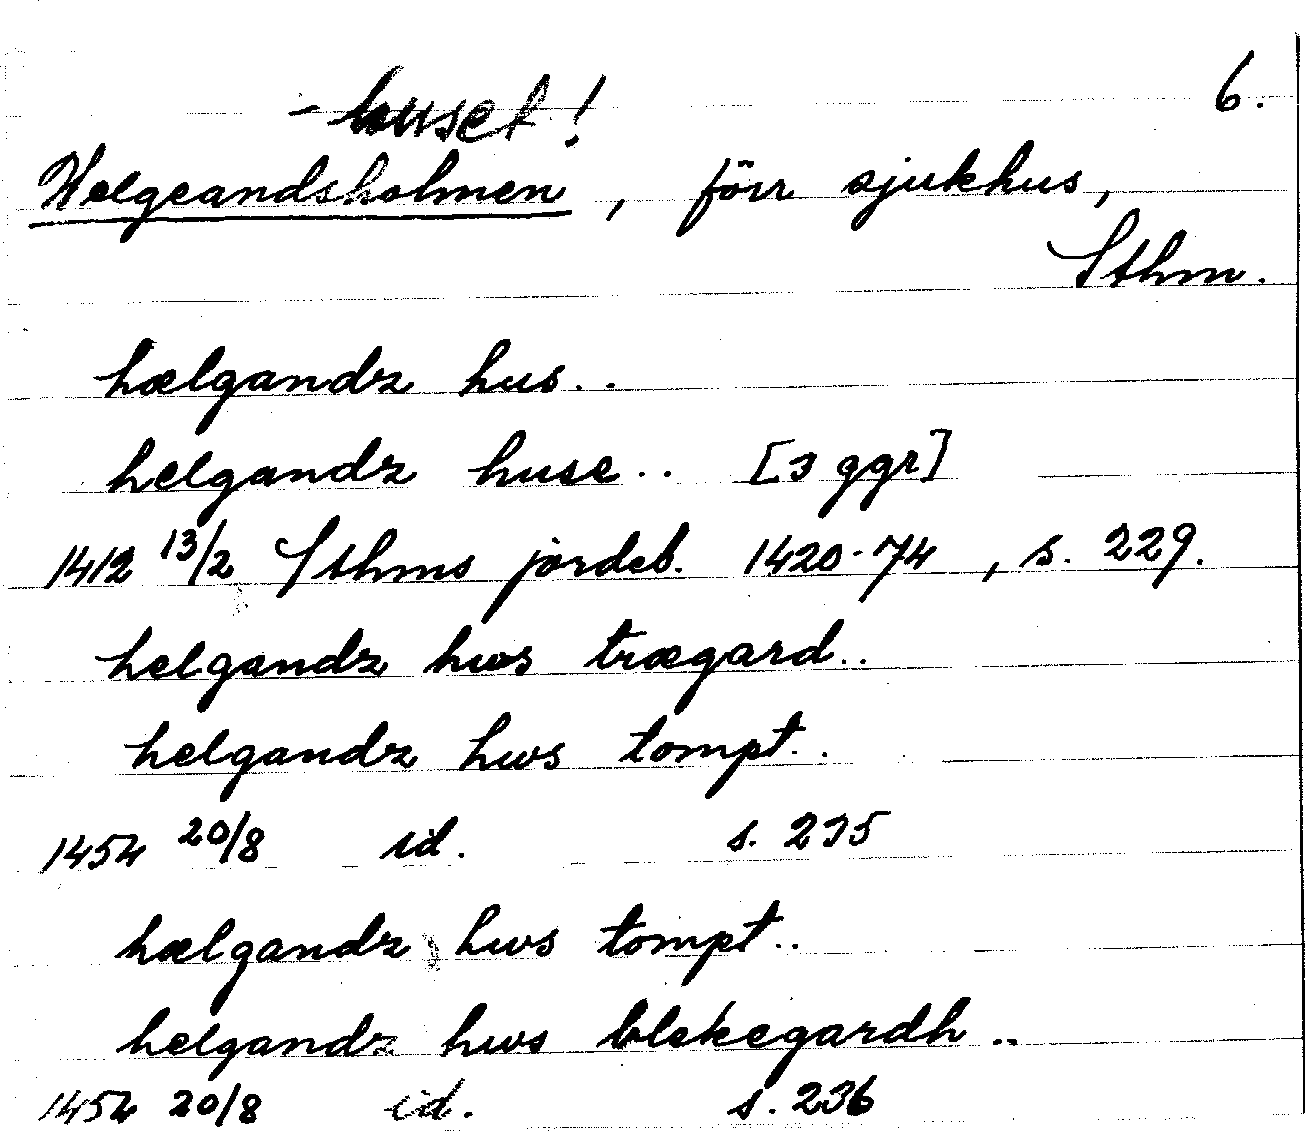 6.
-huset!
Helgeandsholmen, förr sjukhus,
Sthm.
hælgandz hus..
helgandz huse.. [3 ggr]
1412 13/2 Sthms jordeb. 1420-74, s. 229.
helgandz hws trægard..
helgandz hws tompt..
1454 20/8 id. s. 235
hælgandz hws tompt..
helgandz hws blekegardh..
1454 20/8 id. s. 236